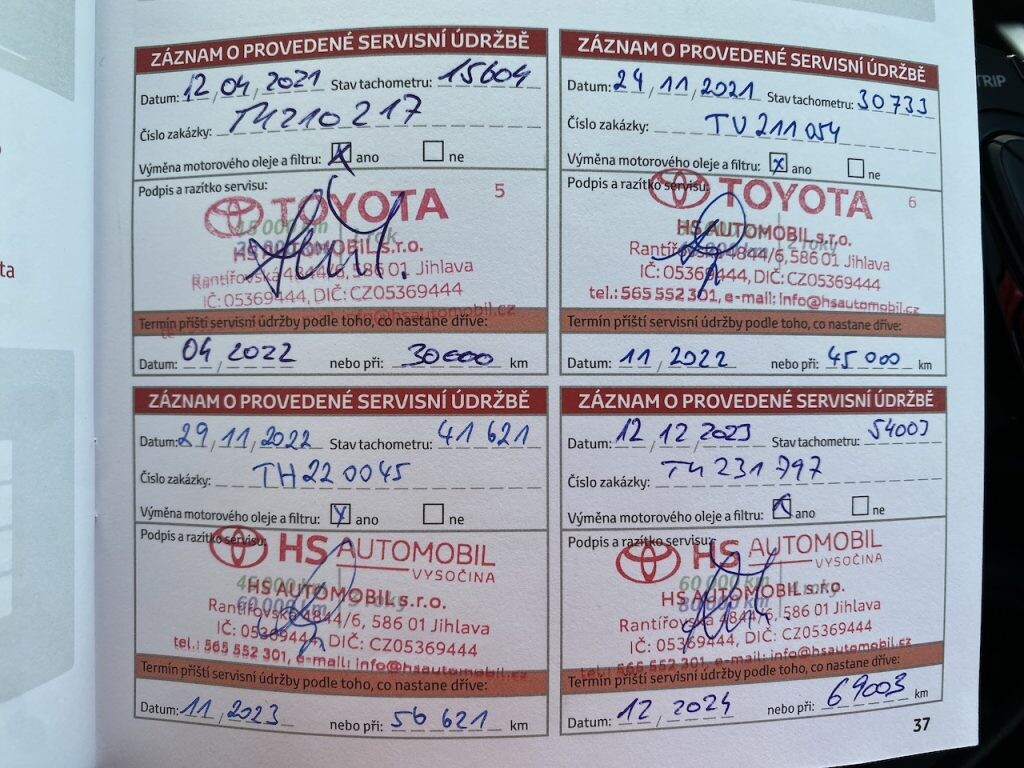 TRIP
ta
ZÁZNAM O PROVEDENÉ SERVISNÍ ÚDRŽBĚ
Datum: 12, 04, 2021 Stav tachometru: 15604
Číslo zakázky: TH210217
Výměna motorového oleje a filtru: x ano ne
Podpis a razítko servisu:
5
TOYOTA
15 000 km 1 rok
HS AUTOMOBIL s.r.o.
Rantířovská 4844/6, 586 01 Jihlava
IČ: 05369444, DIČ: CZ05369444
info@hsautomobil.cz
Termín příští servisní údržby podle toho, co nastane dříve:
Datum: 04, 2022 nebo při: 30000 km
ZÁZNAM O PROVEDENÉ SERVISNÍ ÚDRŽBĚ
Datum: 24, 11, 2021 Stav tachometru: 30733
Číslo zakázky: TV211054
Výměna motorového oleje a filtru: x ano ne
Podpis a razítko servisu:
6
TOYOTA
HS AUTOMOBIL s.r.o.
2 roky
Rantířovská 4844/6, 586 01 Jihlava
IČ: 05369444, DIČ: CZ05369444
tel.: 565 552 301, e-mail: info@hsautomobil.cz
Termín příští servisní údržby podle toho, co nastane dříve:
Datum: 11, 2022 nebo při: 45 000 km
ZÁZNAM O PROVEDENÉ SERVISNÍ ÚDRŽBĚ
Datum: 29, 11, 2022 Stav tachometru: 41 621
Číslo zakázky: TH22 0045
Výměna motorového oleje a filtru: x ano ne
Podpis a razítko servisu:
HS AUTOMOBIL
VYSOČINA
45 000 km
HS AUTOMOBIL s.r.o.
60 000 km 3 roky
Rantířovská 4844/6, 586 01 Jihlava
IČ: 05369444, DIČ: CZ05369444
tel.: 565 552 301, e-mail: info@hsautomobil.cz
Termín příští servisní údržby podle toho, co nastane dříve:
Datum: 11, 2023 nebo při: 56 621 km
ZÁZNAM O PROVEDENÉ SERVISNÍ ÚDRŽBĚ
Datum: 12, 12, 2023 Stav tachometru: 54003
Číslo zakázky: TH 231 797
Výměna motorového oleje a filtru: x ano ne
Podpis a razítko servisu:
HS AUTOMOBIL
VYSOČINA
60 000 km 4 roky
HS AUTOMOBIL s.r.o.
80 000 km
Rantířovská 4844/6, 586 01 Jihlava
IČ: 05369444, DIČ: CZ05369444
tel.: 565 552 301, e-mail: info@hsautomobil.cz
Termín příští servisní údržby podle toho, co nastane dříve:
Datum: 12, 2024 nebo při: 69003 km
37